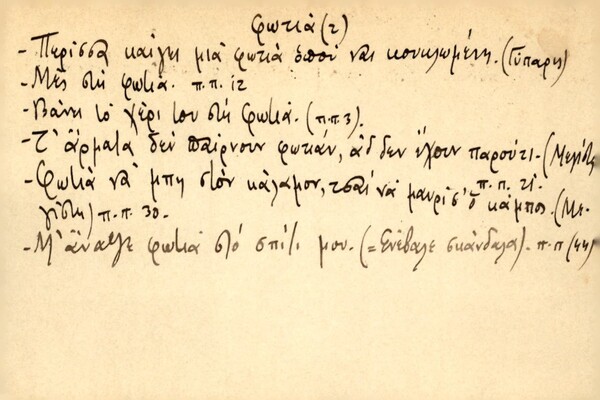 φωτιά (2)
- Περίσσα καίγει μιὰ φωτιὰ ὁποὺ ναι κουκλωμένη. (Γύπαρης)
- Μὲς στὴ φωτιά. π.π. 12
- Βάνει τὸ χέρι του στὴ φωτιά. (π.π. 3).
- Τ' ἄρματα δὲν παίρνουν φωτιάν, ἂδ δὲν ἔχουν παρούτι. (Μεγίστη
π.π. 21.
- Φωτιὰ νὰ μπῇ στὸν κάλαμον, τσαὶ νὰ μαυρίσ' ὁ κάμπος. (Με-
γίστη) π.π. 30.
- Μ' ἄναψε φωτιὰ στὸ σπίτι μου. (= Ἐνέβαλε σκάνδαλα). π.π (44)